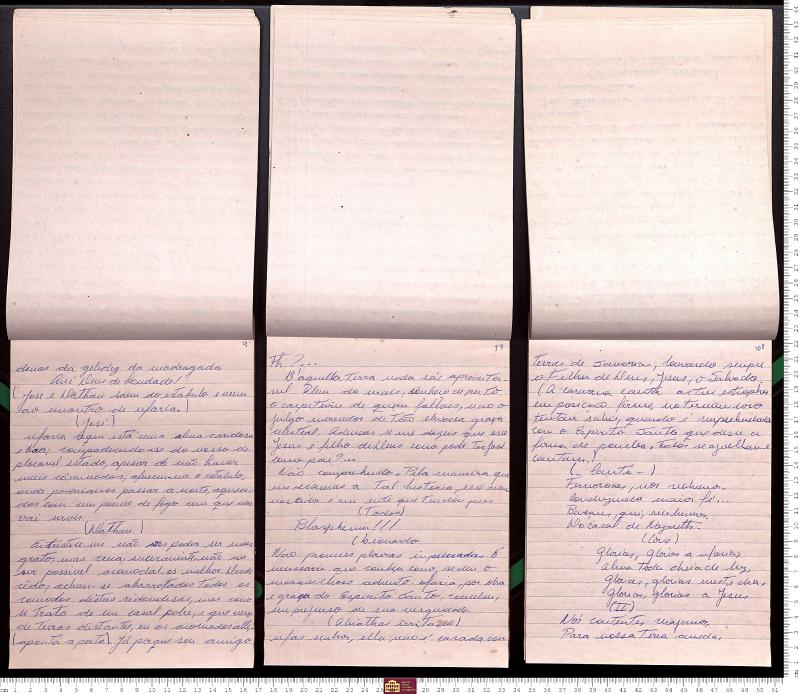 9
demos da gelidez da madrugada
Avé Deus de bondade!
(José e Nathan saem do estabulo e veem
ao encontro de Maria.)
(José.)
Maria aqui está uma alma caridosa
e boa; compadecendo-se do nosso de
plocavel estado, apesar de não haver
mais cômmodos, offereceu-me o estabulo,
onde poderiamos passar a noite, aqueci-
dos com um pouco de fogo com que nos
vai servir.
(Nathan.)
Entristece-me não poder ser mais
grato, mas creia, sinceramente, não me
ser possivel acomodal-os melhor. Neste
acham-se abarrotados todos os
comodos destas redondezas, mas como
se trata de um casal pobre, e que vem
de terras distantes, eu os acomodei alli.
(aponta a porta) Já pague seu amigo
99
Eh?...
D'aquella terra nada sáe aproveita-
vel. Alem do mais, conheço de perto
o carpiteiro de quem fallaes, não o
julgo merecedor de tão grassa
celestial. Ademas se me dizeis que esse
Jesus, é filho de Deus como pode ter José
como pai?...
Não comprehendo. Pela maneira que
me a tal historia, esse
Jesus é um ente que tendes por
(Todos)
Blasphemo!!!
(Leonardo)
Não proneies plavras impensadas. É
necessario que conheçaes, sendo o
maravilhoso advento. Maria, por obra
e graça do Espirito Santo, concebeu,
sem prejuiso de sua virgindade.
(Abiathar irritado)
Mas senhor, ella não é casada com
108
terras de Samarias, louvando sempre
o Filho de Deus, Jesus, o Salvador.
(A caravana canta as tres estrophes
em posição firme, no terminar vão
tentar sahir, quando é surprehendida
com o Espirito Santo que desce em
forma de pomba, todos se ajoelham e
cantam.)
(- Canto -)
Formosas, nós viemos
Conduzidos numa fé...
Buscar, qui, recebemos,
Do casal de Nazareth.
(Côro)
Glorias, glorias a Maria,
Alma toda cheia de luz,
Glorias, glorias neste dia,
Glorias, glorias a Jesus.
(II)
Nós contentes viajamos,
Para nossa terra amada,